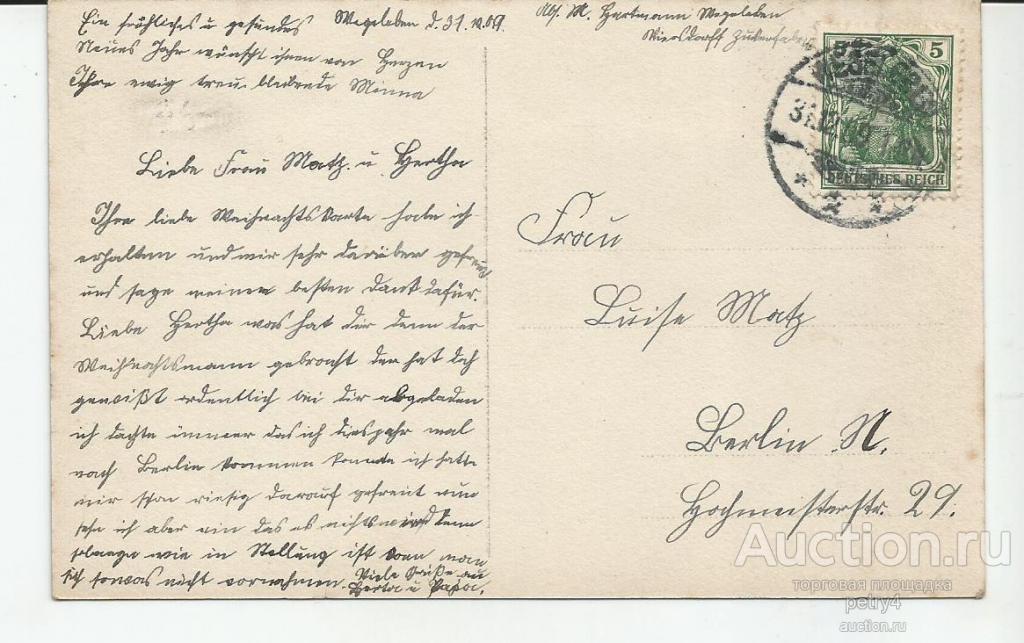 Ein fröhliches u gesundes
Neues Jahr wünscht ihnen von Herzen
Ihre ewig treu bleibende Minna
Wegeleben d. 31.12.09.
Abs. M. Hartmann Wegeleben
Wiersdorff Zuckerfabrik
5
DEUTSCHES REICH
Liebe Frau Matz u Hertha
Ihre liebe Weihnachtskarte habe ich
erhalten und mir sehr darüber gefreut
und sage meinen besten Dank dafür.
Liebe Hertha was hat dir denn der
Weihnachtsmann gebracht der hat doch
gewißt ordentlich bei dir abgeladen
ich dachte immer das ich diesjahr mal
nach Berlin kommen konnte ich hatte
mir schon riesig darauf gefreut nun
sehe ich aber ein das es nichts wird denn
solange wie in Stellung ist kann man
sich sowas nicht vornehmen. Viele Grüße an
Herta u Papa.
Frau
Luise Matz
Berlin N.
Hochmeisterstr. 29.
Auction.ru
торговая площадка
petry4
auction.ru